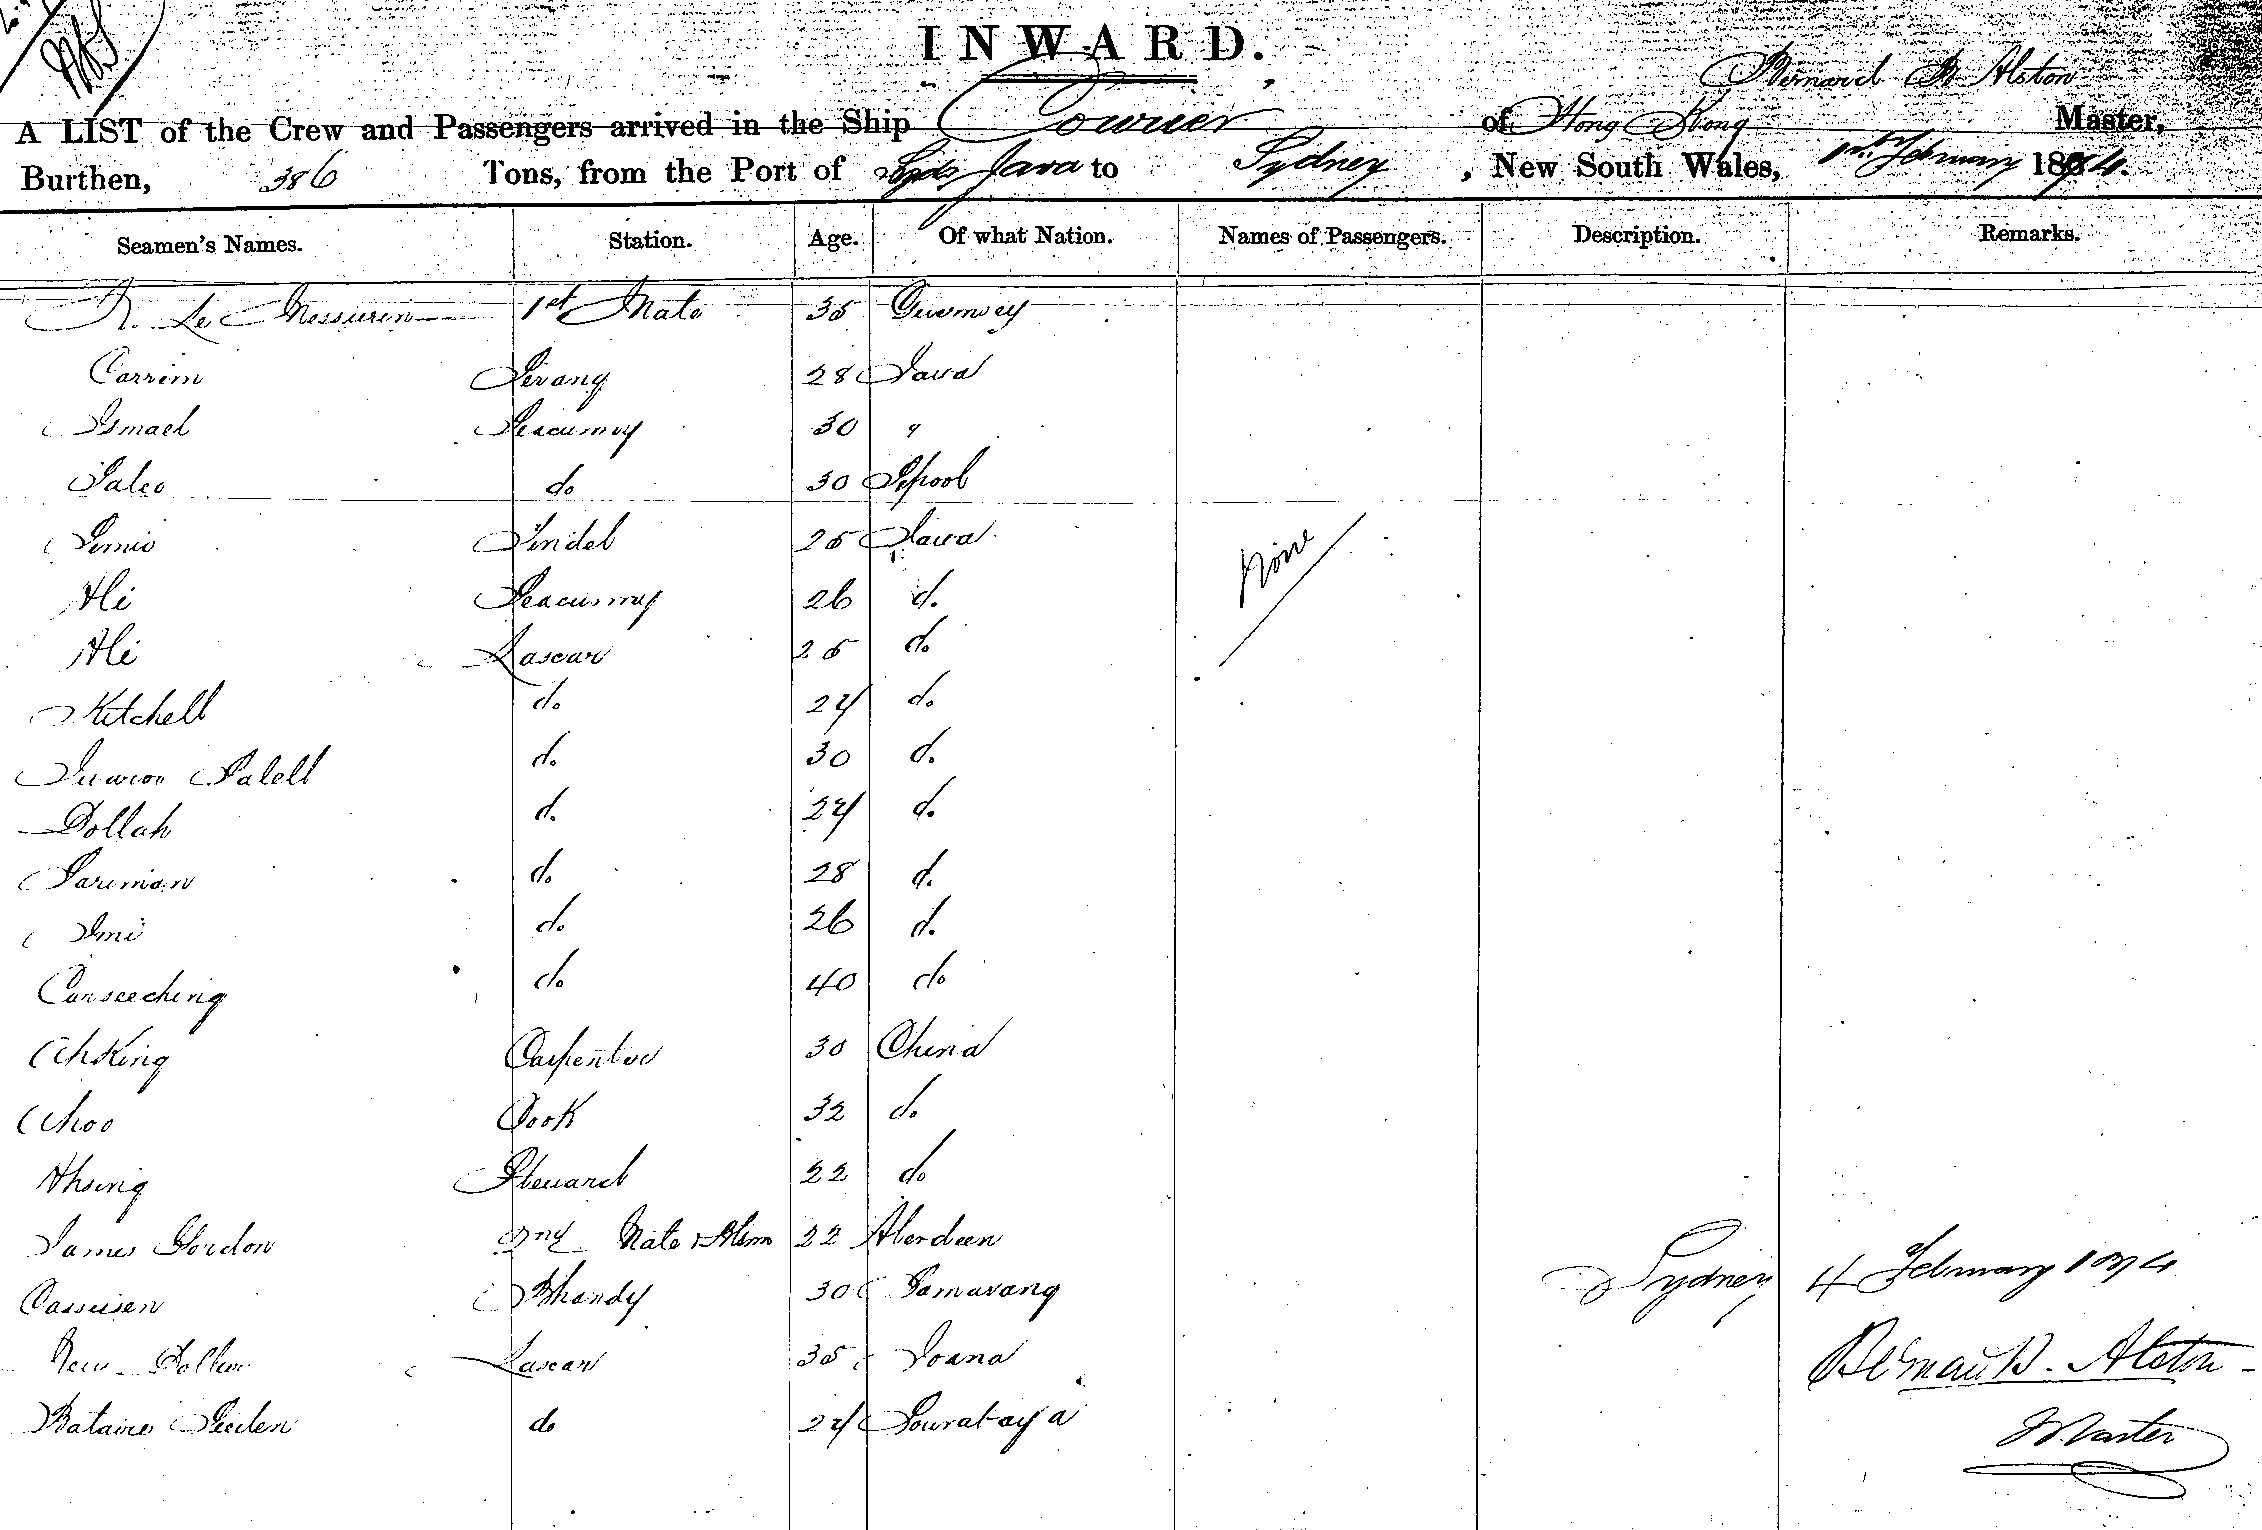 INWARD.
Bernard R Alston
A LIST of the Crew and Passengers arrived in the Ship Courier of Hong Kong Master,
Burthen, 386 Tons, from the Port of Java to Sydney, New South Wales, February 1874.
Seamen's Names. Station. Age. Of what Nation. Names of Passengers. Description. Remarks.
R. Le Messurier 1st Mate 35 Guernsey
Carrim Serang 28 Java
Ismael Seacunny 30 "
Saleo do 30
Simio Tindel 25 Java
Ali Seacunny 26 do
Ali Lascar 25 do
Kitchell do 24 do
Palell do 30 do
Dollah do 24 do
Sariman do 28 do
Imi do 26 do
Conseeching do 40 do
AhKing Carpenter 30 China
Ahoo Cook 32 do
Ahsing Steward 22 do
None
James Gordon 2nd Mate 22 Aberdeen
Cassisen Bhandy 30 Samarang Sydney 4 February 1874
Lascar 35 Joana Bernard R. Alston
do 24 Sourabaya Master